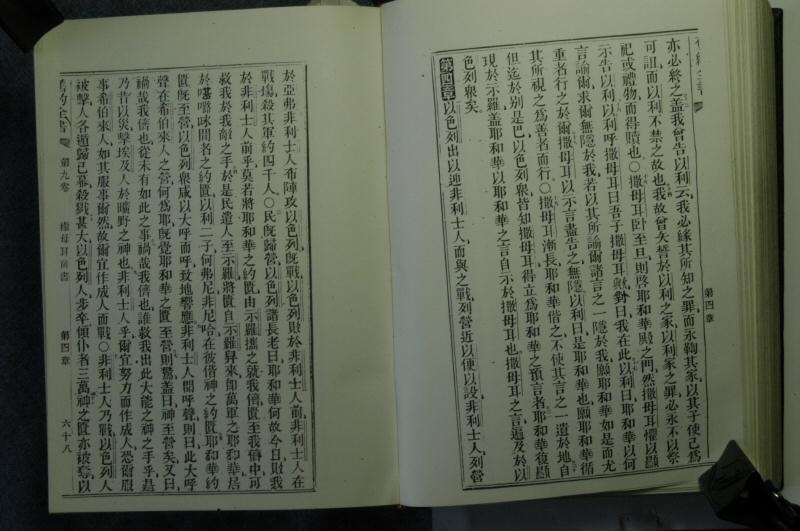 第四章
亦必終之蓋我曾告以利云我必緣其所知之罪而永鞫其家以其子使己爲
可詛而以利不禁之故也我故曾矢誓於以利之家以利家之罪必永不以祭
祀或禮物而得贖也○撒母耳臥至旦則啓耶和華殿之門然撒母耳懼以顯
示告以利以利呼撒母耳曰吾子撒母耳歟對曰我在此以利曰耶和華以何
言諭爾求爾無隱於我若以其所諭爾諸言之一隱於我願耶和華如是而尤
重者行之於爾撒母耳以示言盡告之無隱以利曰是耶和華也願耶和華循
其所視之爲善者而行○撒母耳漸長耶和華偕之不使其言之一遺於地自
但迄於別是巴以色列衆皆知撒母耳得立爲耶和華之預言者耶和華復顯
現於示羅蓋耶和華以耶和華之言自示於撒母耳也撒母耳之言遍及於以
色列衆矣
第四章以色列出以迎非利士人而與之戰列營近以便以設非利士人列營
於亞弗非利士人布陣攻以色列旣戰以色列敗於非利士人前非利士人在
戰場殺其軍約四千人○民旣歸營以色列諸長老曰耶和華何故今日敗我
於非利士人前乎莫若將耶和華之約匱由示羅攜之就我儕匱至我儕中可
救我於我敵之手於是民遣人至示羅將匱自示羅舁來卽萬軍之耶和華居
於𠼻𡀔㖠間者之約匱以利二子何弗尼非尼哈在彼偕神之約匱耶和華約
匱旣至營以色列衆咸以大呼而呼致地響應非利士人聞呼聲則曰此大呼
聲在希伯來人之營何爲耶旣覺耶和華之匱至營則驚蓋曰神至營矣又曰
禍哉我儕也從未有如此之事禍哉我儕也誰救我出此大能之神之手乎是
乃昔以災擊埃及人於曠野之神也非利士人乎爾宜努力而作成人恐爾服
事希伯來人如其服事爾然故爾宜作成人而戰○非利士人乃戰以色列人
被擊人各遁歸己幕殺戮甚大以色列人步卒傾仆者三萬神之匱亦被奪以
舊約全書 第九卷 撒母耳前書 第四章 六十八